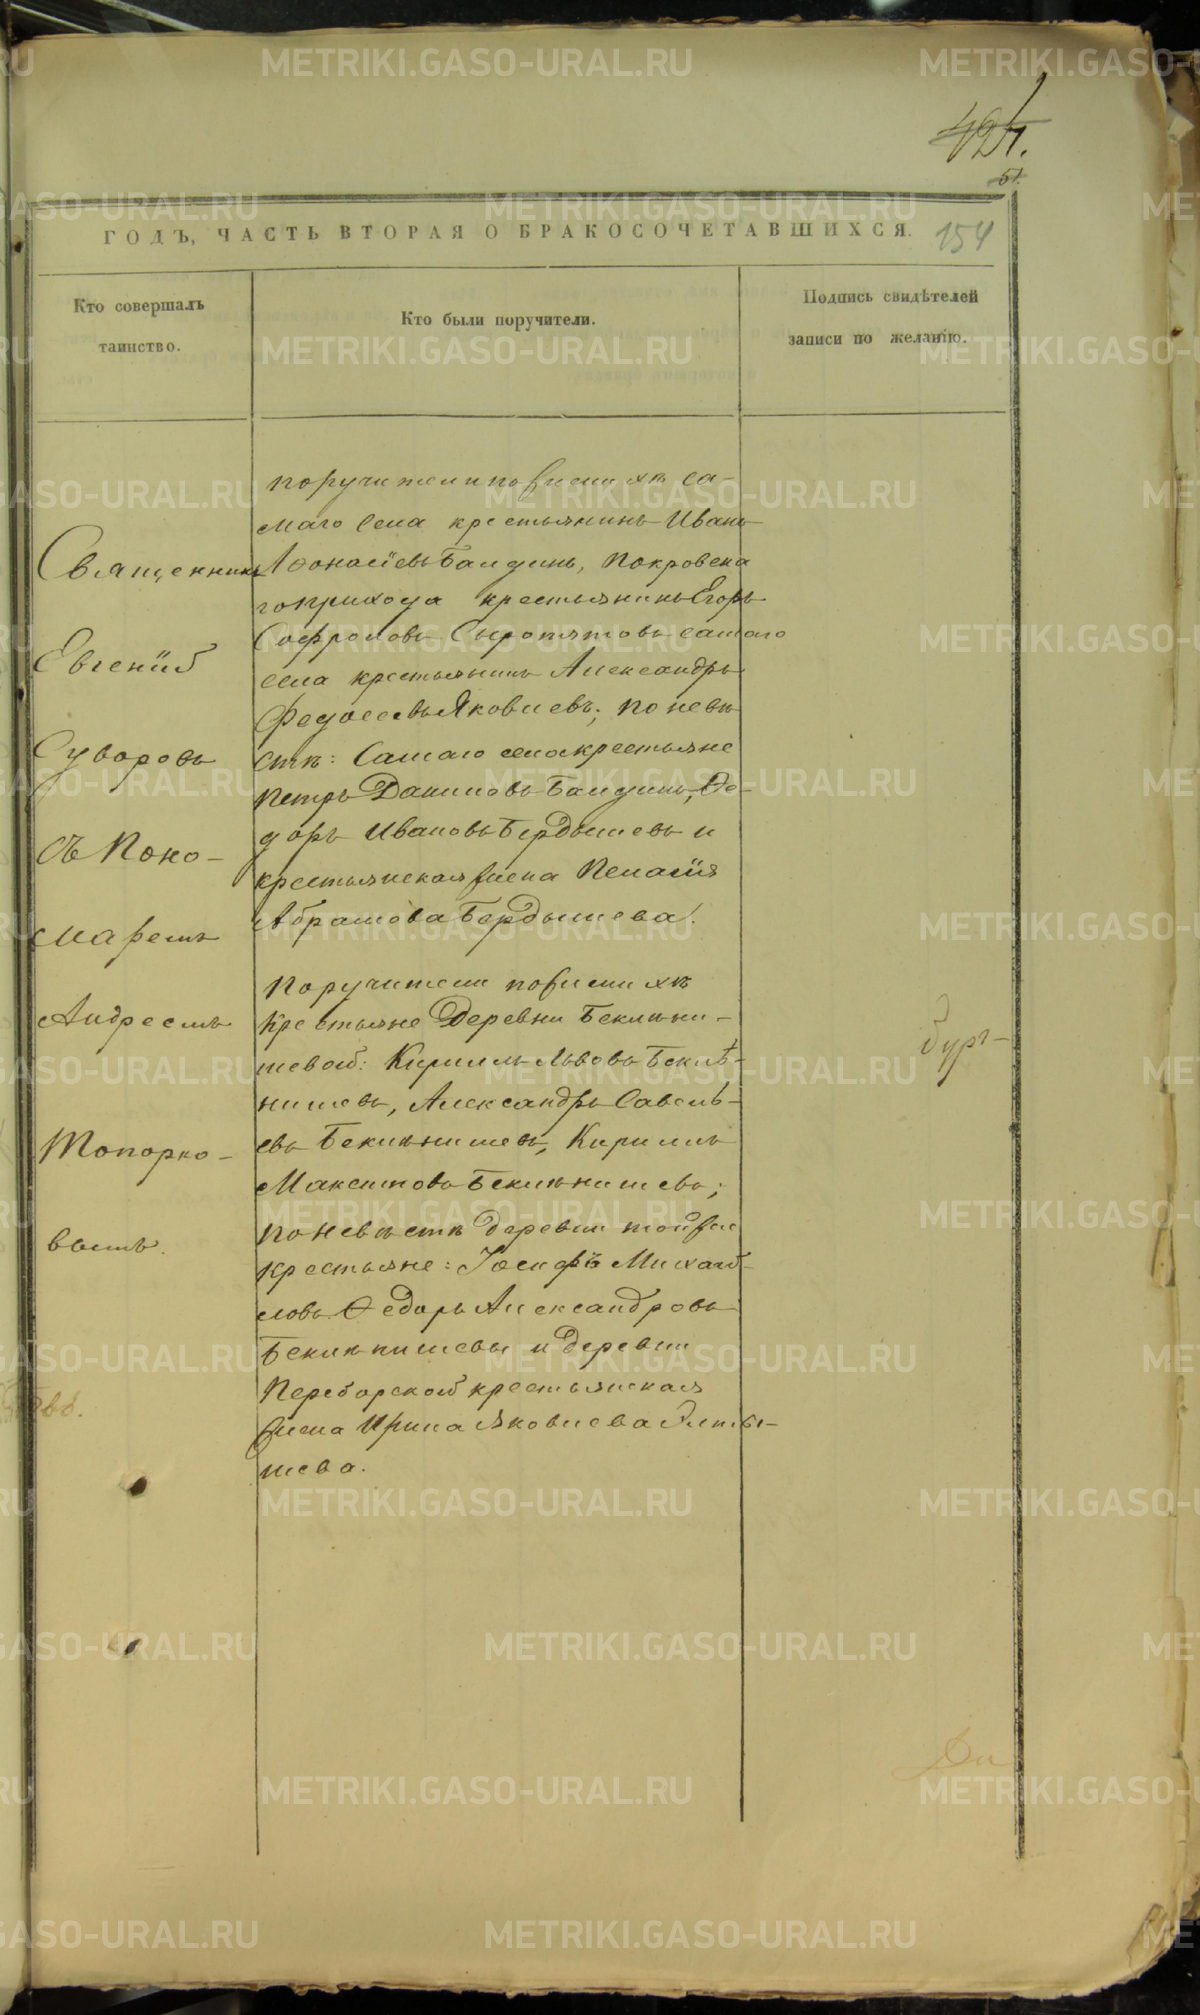 424.
51.
ГОДЪ, ЧАСТЬ ВТОРАЯ О БРАКОСОЧЕТАВШИХСЯ.
154
Кто совершалъ
таинство.
Кто были поручители.
Подпись свидѣтелей
записи по желанію.
Священникъ
Евгеній
Суворовъ
съ Поно-
маремъ
Андреемъ
Топорко-
вымъ.
поручители по женихѣ са-
маго села крестьянинъ Иванъ
Аѳонасіевъ Балдинъ, Покровска
го прихода крестьянинъ Егоръ
Софроновъ Сыропятовъ самаго
села крестьянинъ Александръ
Федосеевъ Яковлевъ; по невѣ
стѣ: Самаго села крестьяне
Петръ Даниловъ Балдинъ, Ѳе-
доръ Ивановъ Бердышевъ и
крестьянская жена Пелагія
Абрамова Бердышева.
Поручители по женихѣ
Крестьяне Деревни Беклѣни-
шевой: Кириллъ Львовъ Беклѣ-
нишевъ, Александръ Савель-
евъ Беклѣнишевъ, Кириллъ
Максимовъ Беклѣнишевъ;
по невѣстѣ деревни той же
крестьяне: Іосифъ Михай-
ловъ Ѳедоръ Александровъ
Беклѣнишевы и деревни
Переборской крестьянская
жена Ирина Яковлева Ялты-
шева.
бург-
METRIKI.GASO-URAL.RU